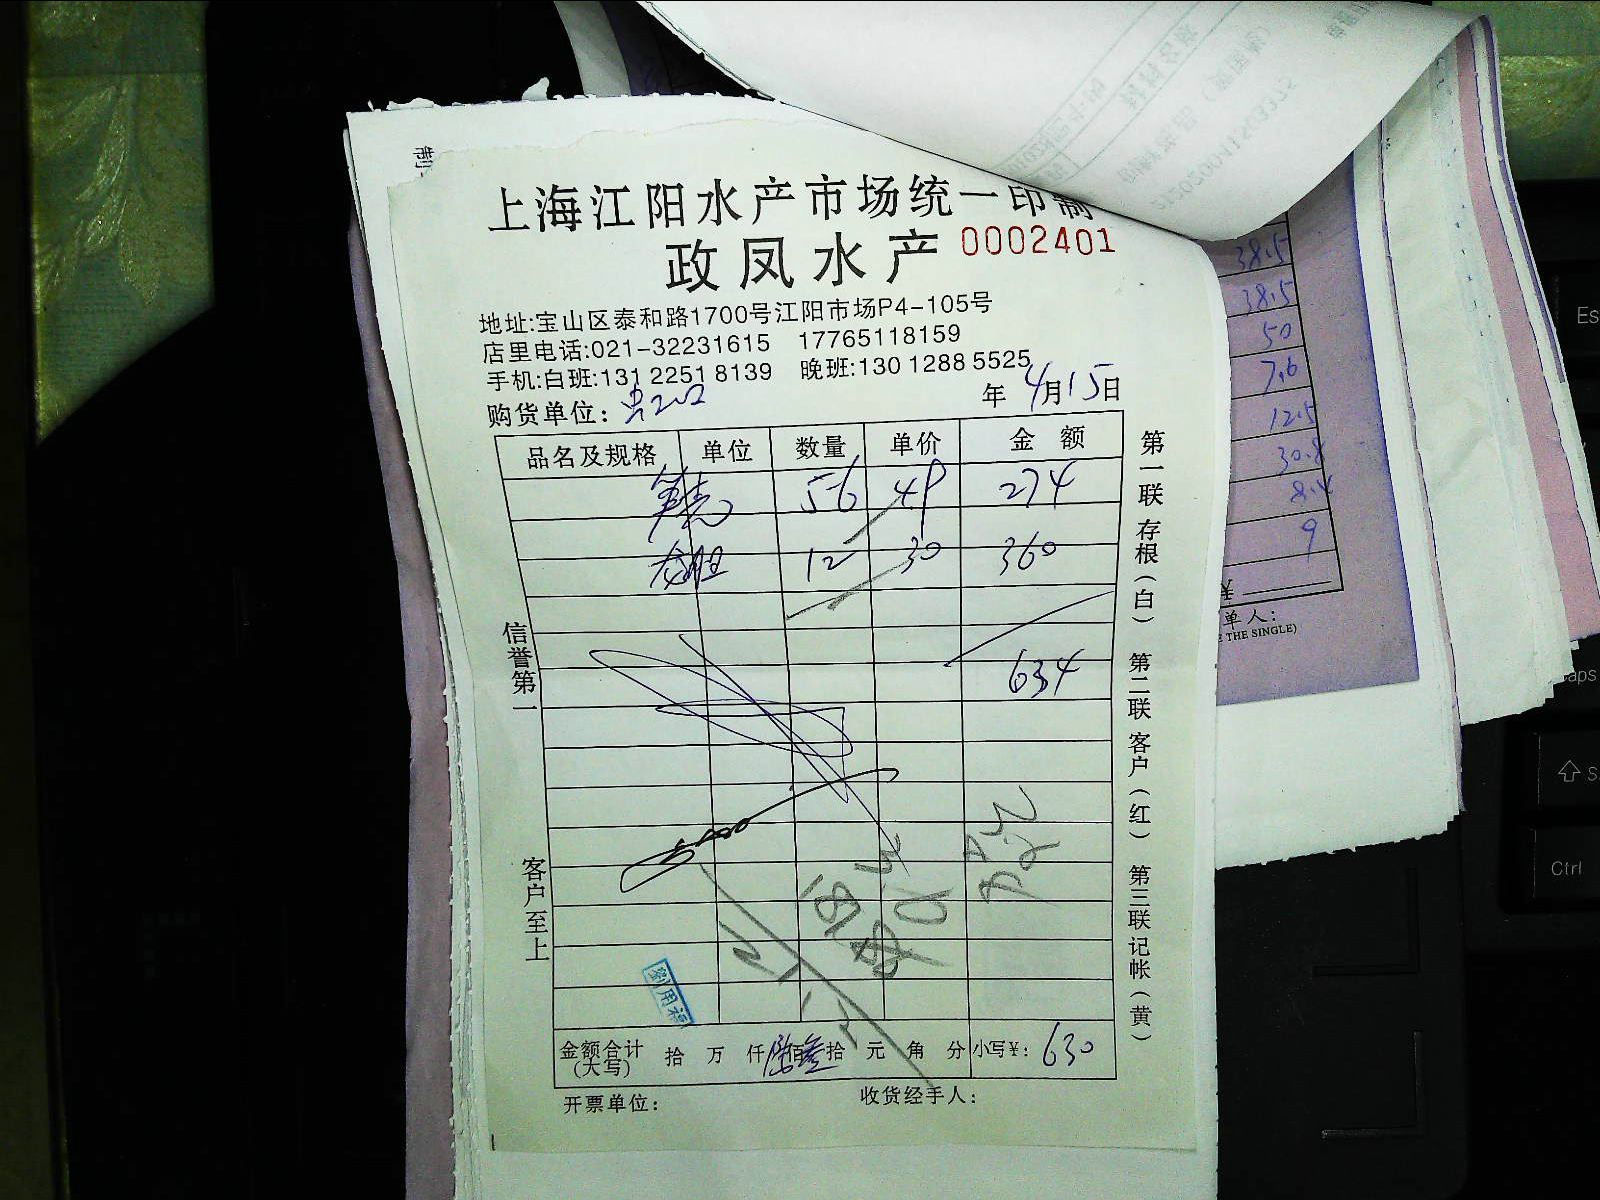 上海江阳水产市场统一印制
政凤水产 0002401
地址:宝山区泰和路1700号江阳市场P4-105号
店里电话:021-32231615 17765118159
手机:白班:131 2251 8139 晚班:130 1288 5525
购货单位: 年 4月15日
品名及规格 单位 数量 单价 金额
56 49 274
12 30 360
634
金额合计(大写) 拾 万 仟 陆佰叁拾 元 角 分 小写¥: 630
开票单位: 收货经手人:
信誉第一
客户至上
第一联存根(白) 第二联客户(红) 第三联记帐(黄)
38.5
38.5
50
7.6
12.5
30.8
8.4
9
¥
单人:
E THE SINGLE)
Es
Ctrl